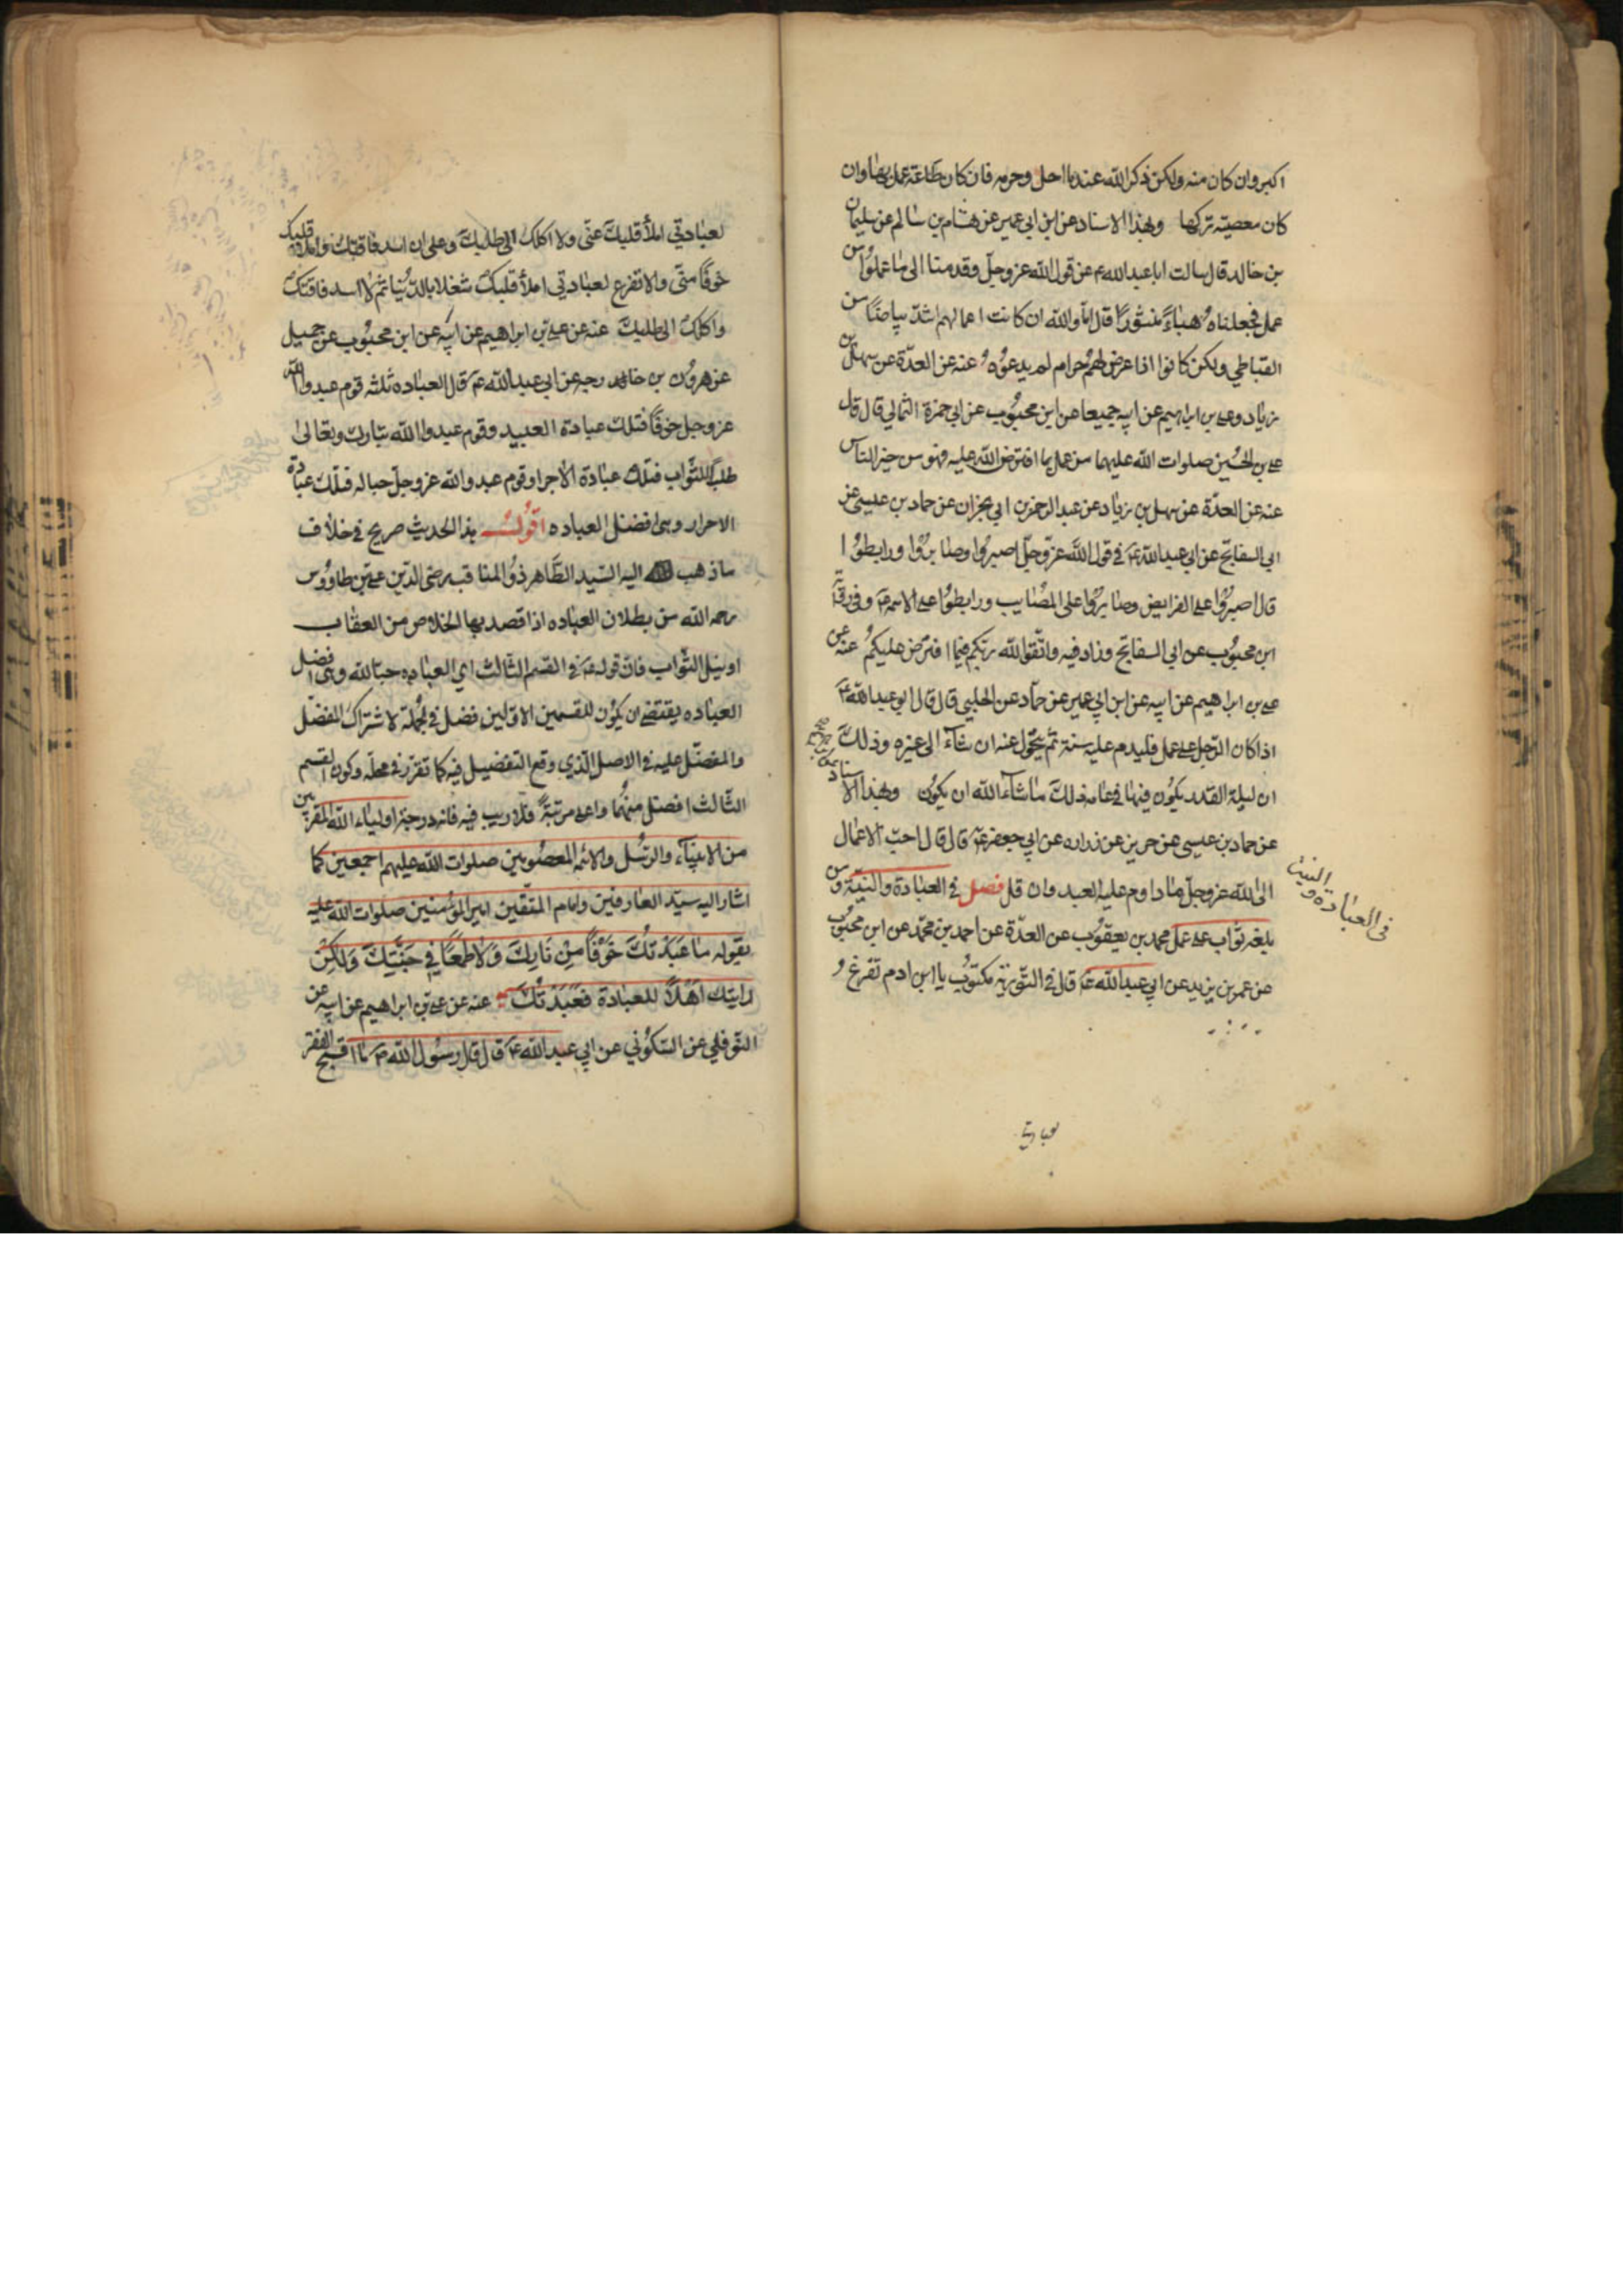 اكبر وان كان منه ولكن ذكر الله عند ما احل وحرم فان كان طاعة عمل بها وان
كان معصية تركها وبهذا الاسناد عن ابن ابي عمير عن هشام بن سالم عن سليمان
بن خالد قال سالت ابا عبدالله ع عن قول الله عز وجل وقدمنا الى ما عملوا من
عمل فجعلناه هباء منثورا قال اما والله ان كانت اعمالهم اشد بياضا من
القباطي ولكن كانوا اذا عرض لهم حرام لم يدعوه عنه عن العدة عن سهل بن
زياد وعلي بن ابراهيم عن ابيه جميعا عن ابن محبوب عن ابي حمزة الثمالي قال قال
علي بن الحسين صلوات الله عليهما من عمل بما افترض الله عليه فهو من خير الناس
عنه عن العدة عن سهل بن زياد عن عبد الرحمن بن ابي نجران عن حماد بن عيسى عن
ابي السفاتج عن ابي عبدالله ع في قول الله عز وجل اصبروا وصابروا ورابطوا
قال اصبروا على الفرايض وصابروا على المصايب ورابطوا على الائمه ع وفي رواية
ابن محبوب عن ابي السفاتج وزاد فيه واتقوا الله ربكم فيما افترض عليكم عنه عن
علي بن ابراهيم عن ابيه عن ابن ابي عمير عن حماد عن الحلبي قال قال ابو عبدالله ع
اذا كان الرجل على عمل فليدم عليه سنة ثم يتحول عنه ان شاء الى غيره وذلك
ان ليلة القدر يكون فيها في عامه ذلك ما شاء الله ان يكون وبهذا الاسناد
عن حماد بن عيسى عن حريز عن زراره عن ابي جعفر ع قال قال احب الاعمال
الى الله عز وجل ما داوم عليه العبد وان قل فصل في العبادة والنية ومن
بلغه ثواب على عمل محمد بن يعقوب عن العدة عن احمد بن محمد عن ابن محبوب
عن عمر بن يزيد عن ابي عبدالله ع قال في التورية مكتوب يا ابن ادم تفرغ
في العبادة والنية
لعبادتي
لعبادتي املأ قلبك غنى ولا اكلك الى طلبك وعلي ان اسد فاقتك واملأ قلبك
خوفا مني والا تفرغ لعبادتي املأ قلبك شغلا بالدنيا ثم لا اسد فاقتك
واكلك الى طلبك عنه عن علي بن ابراهيم عن ابيه عن ابن محبوب عن جميل
عن هرون بن خارجه عن ابي عبدالله ع قال العباده ثلثه قوم عبدوا الله
عز وجل خوفا فتلك عبادة العبيد وقوم عبدوا الله تبارك وتعالى
طلب الثواب فتلك عبادة الاجرا وقوم عبدوا الله عز وجل حبا له فتلك عبادة
الاحرار وهى افضل العباده اقول هذا الحديث صريح في خلاف
ما ذهب اليه السيد الطاهر ذو المناقب رضى الدين علي بن طاووس
رحمه الله من بطلان العباده اذا قصد بها الخلاص من العقاب
او نيل الثواب فان قوله ع في القسم الثالث اي العباده حبا لله وهى افضل
العباده يقتضى ان يكون للقسمين الاولين فضل في الجملة لاشتراك المفضل
والمفضل عليه في الاصل الذي وقع التفضيل فيه كما تقرر في محله وكون القسم
الثالث افضل منهما واعلى مرتبة فلا ريب فيه فانه درجة اولياء الله المقربين
من الانبياء والرسل والائمه المعصومين صلوات الله عليهم اجمعين كما
اشار اليه سيد العارفين وامام المتقين امير المؤمنين صلوات الله عليه
بقوله ما عَبَدْتُكَ خَوْفًا مِنْ نَارِكَ وَلا طَمَعًا فِي جَنَّتِكَ وَلَكِنْ
رايتك اَهْلاً للعبادة فَعَبَدْتُكَ عنه عن علي بن ابراهيم عن ابيه عن
النوفلي عن السكوني عن ابي عبدالله ع قال قال رسول الله ص ما اقبح الفقر